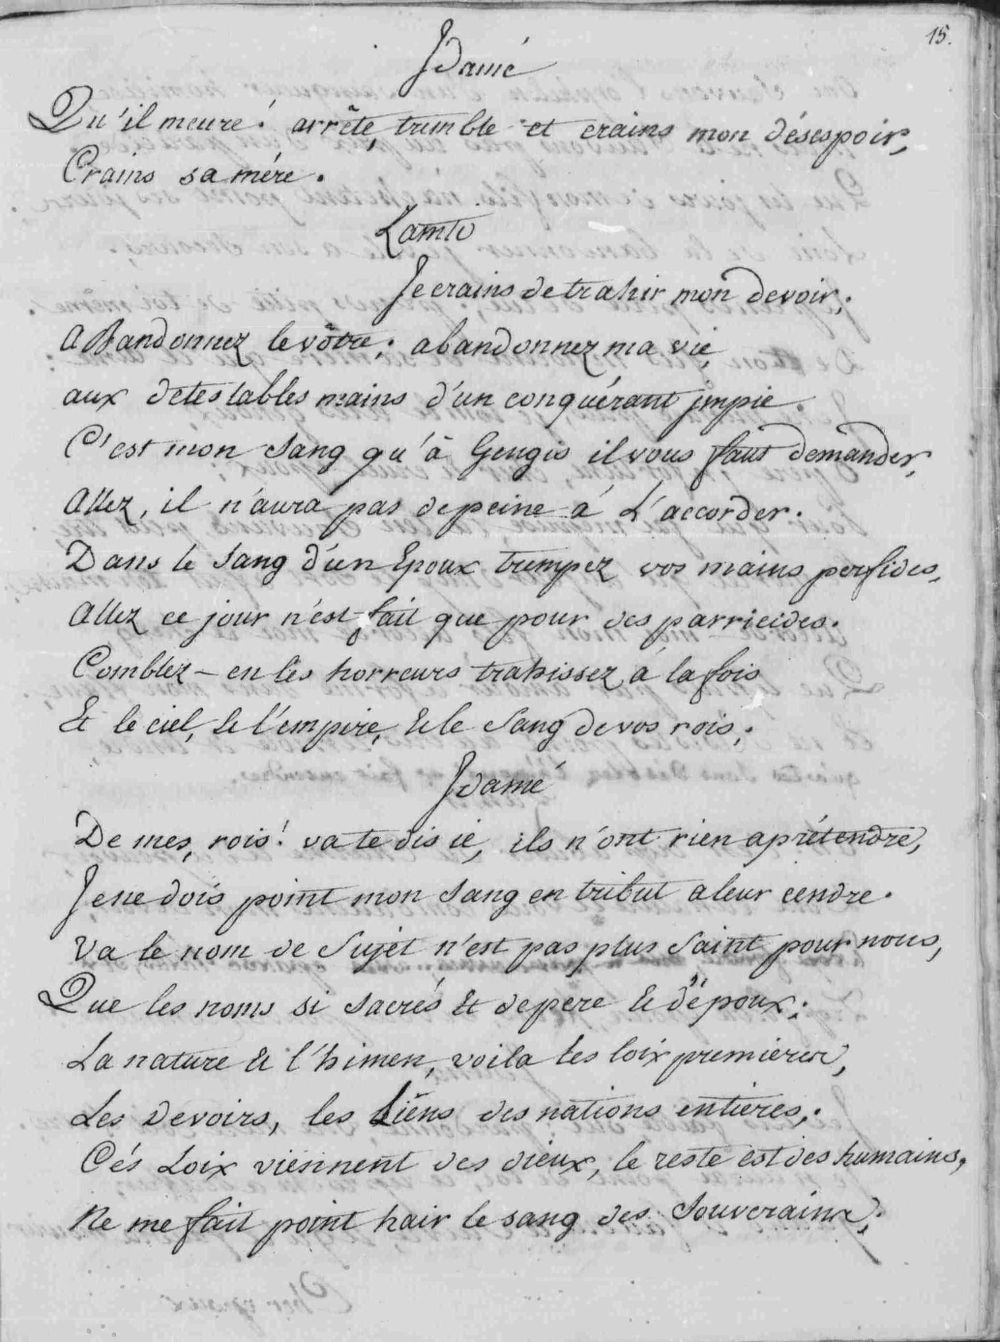 15.
Idamé
Qu'il meure! arrête, trimble et crains mon désespoir,
Crains sa mére.
Zamti
Je crains de trahir mon devoir.
abandonnez le vôtre; abandonnez ma vie,
aux detestables mains d'un conquérant jmpie.
C'est mon sang qu'à Gengis il vous faut demander,
allez, il n'aura pas de peine á L'accorder.
Dans le sang d'un Epoux trempez vos mains perfides,
allez ce jour n'est fait que pour des parricides.
Comblez-en les horreurs trahissez á la fois
Et le ciel, & l'empire, & le sang de vos rois;
Idamé
De mes, rois! va te dis ie, ils n'ont rien aprétendre,
Je ne dois point mon sang en tribut a leur cendre.
Va le nom de sujet n'est pas plus saint pour nous,
Que les noms si sacrés Et de pere & d'époux;
La nature & l'himen, voila les loix premieres,
Les Devoirs, les Liëns des nations entieres;
Cés Loix viennent des dieux, le reste est des humains,
Ne me fait point hair le sang des Souverains,